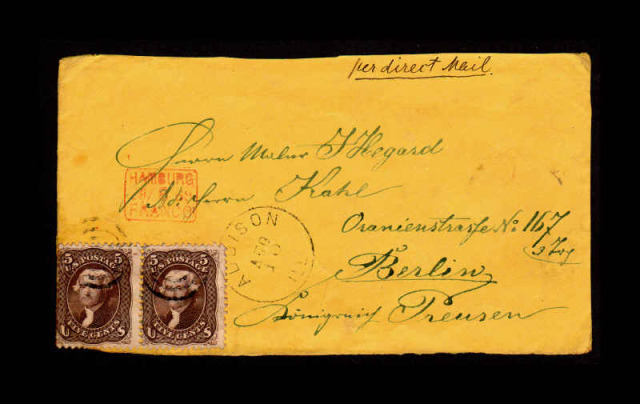 per direct Mail.
Herrn Maler J Hegard
HAMBURG
FRANCO
Adr. Herrn Kahl
Oranienstraße No 167
3 Trp
Berlin
Königreich Preusen
ADDISON
APR
ILL
5 5
U.S. POSTAGE
U FIVE CENTS S
5 5
U.S. POSTAGE
U FIVE CENTS S